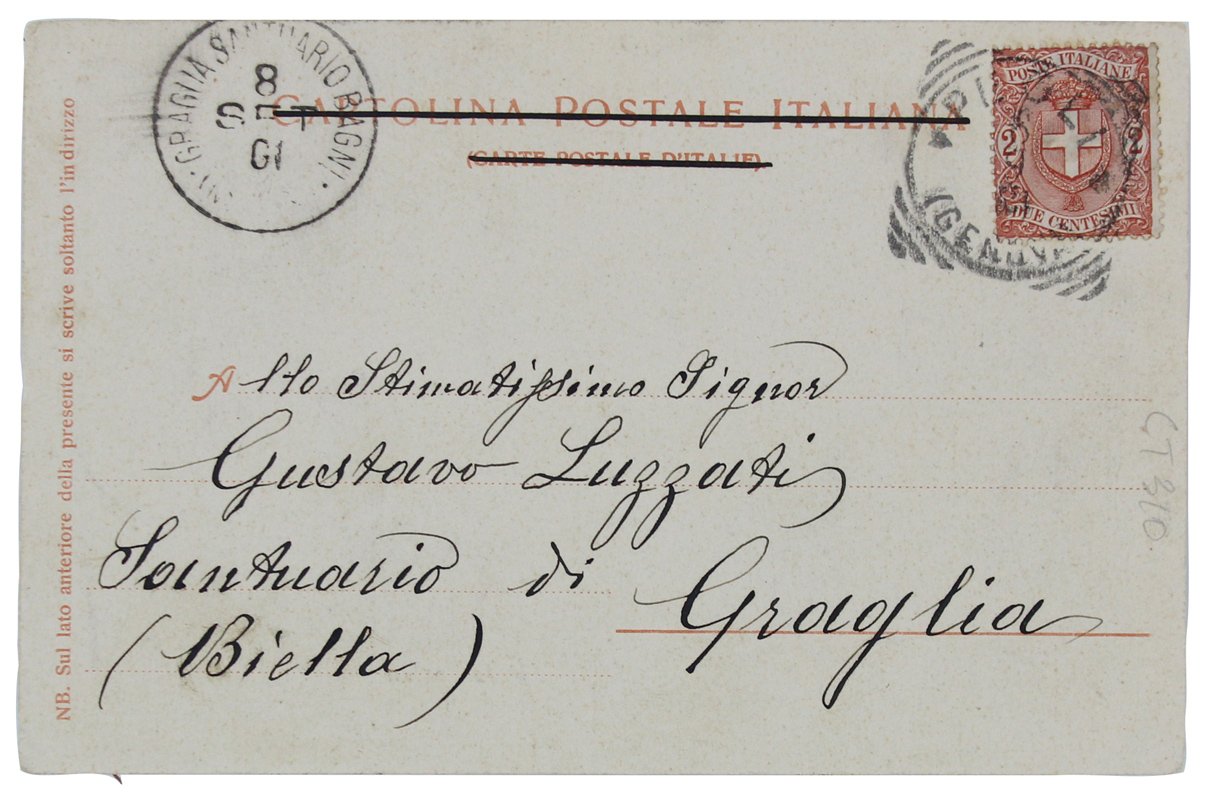 GRAGLIA SANTUARIO BAGNI
8
SET
01
CARTOLINA POSTALE ITALIANA
(CARTE POSTALE D'ITALIE)
POSTE ITALIANE
2 2
DUE CENTESIMI
(GENOVA
Allo Stimatissimo Signor
Gustavo Luzzati
Santuario di Graglia
(Biella)
NB. Sul lato anteriore della presente si scrive soltanto l'indirizzo
CT 310